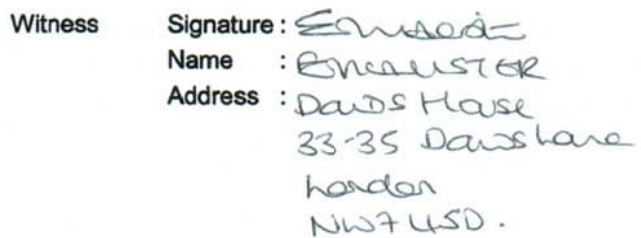 Witness Signature :
Name :
Address : Daws House
33-35 Daws Lane
London
NW7 4SD.